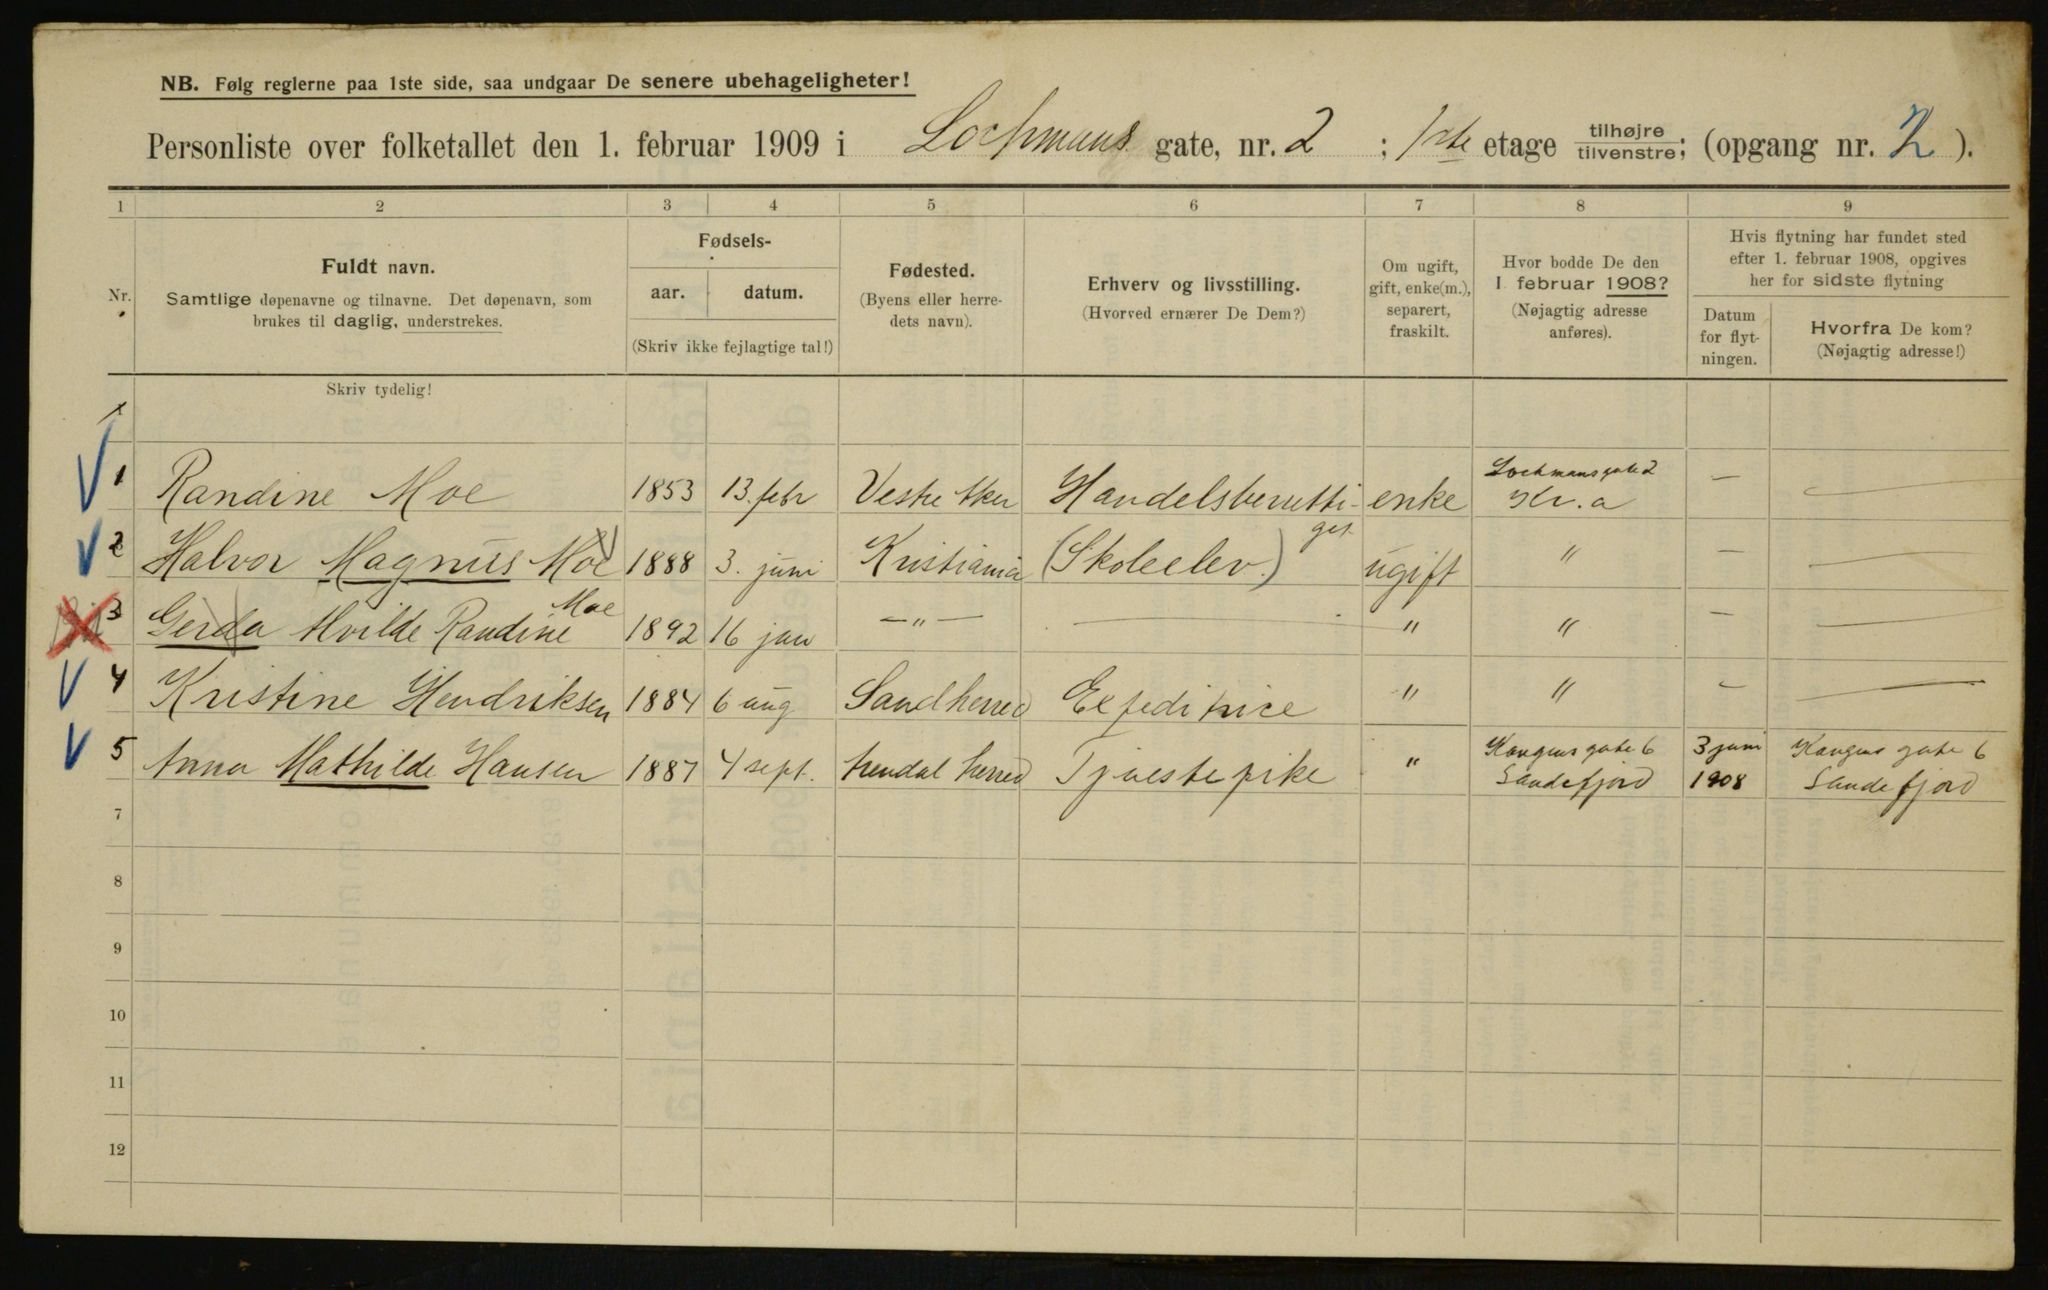 NB. Følg reglerne paa 1ste side, saa undgaar De senere ubehageligheter!
Personliste over folketallet den 1. februar 1909 i Lochmans gate, nr. 2 ; 1ste etage tilhøjre tilvenstre; (opgang nr. 2 ).
1 2 3 4 5 6 7 8 9
Nr.
Fuldt navn.
Samtlige døpenavne og tilnavne. Det døpenavn, som
brukes til daglig, understrekes.
Skriv tydelig!
Fødsels-
aar. datum.
(Skriv ikke fejlagtige tal!)
Fødested.
(Byens eller herre-
dets navn).
Erhverv og livsstilling.
(Hvorved ernærer De Dem?)
Om ugift,
gift, enke(m.),
separert,
fraskilt.
Hvor bodde De den
1 februar 1908?
(Nøjagtig adresse
anføres).
Hvis flytning har fundet sted
efter 1. februar 1908, opgives
her for sidste flytning
Datum
for flyt-
ningen.
Hvorfra De kom?
(Nøjagtig adresse!)
1
1 Randine Moe 1853 13. febr Vestre Aker Handelsberetti- enke Lochmansgate 2 Kr.a —
get.
2 Halvor Magnus Moe 1888 3. juni Kristiania (Skoleelev.) ugift " —
3 Gerda Hvilde Randine Moe 1892 16 jan —"— " " —
4 Kristine Hendriksen 1884 6 aug Sandherred Expeditrice " " —
5 Anna Mathilde Hansen 1887 4 sept. herred Tjenestepike " Kongens gate 6 Sandefjord 3 juni 1908 Kongens gate 6 Sandefjord
7
8
9
10
11
12